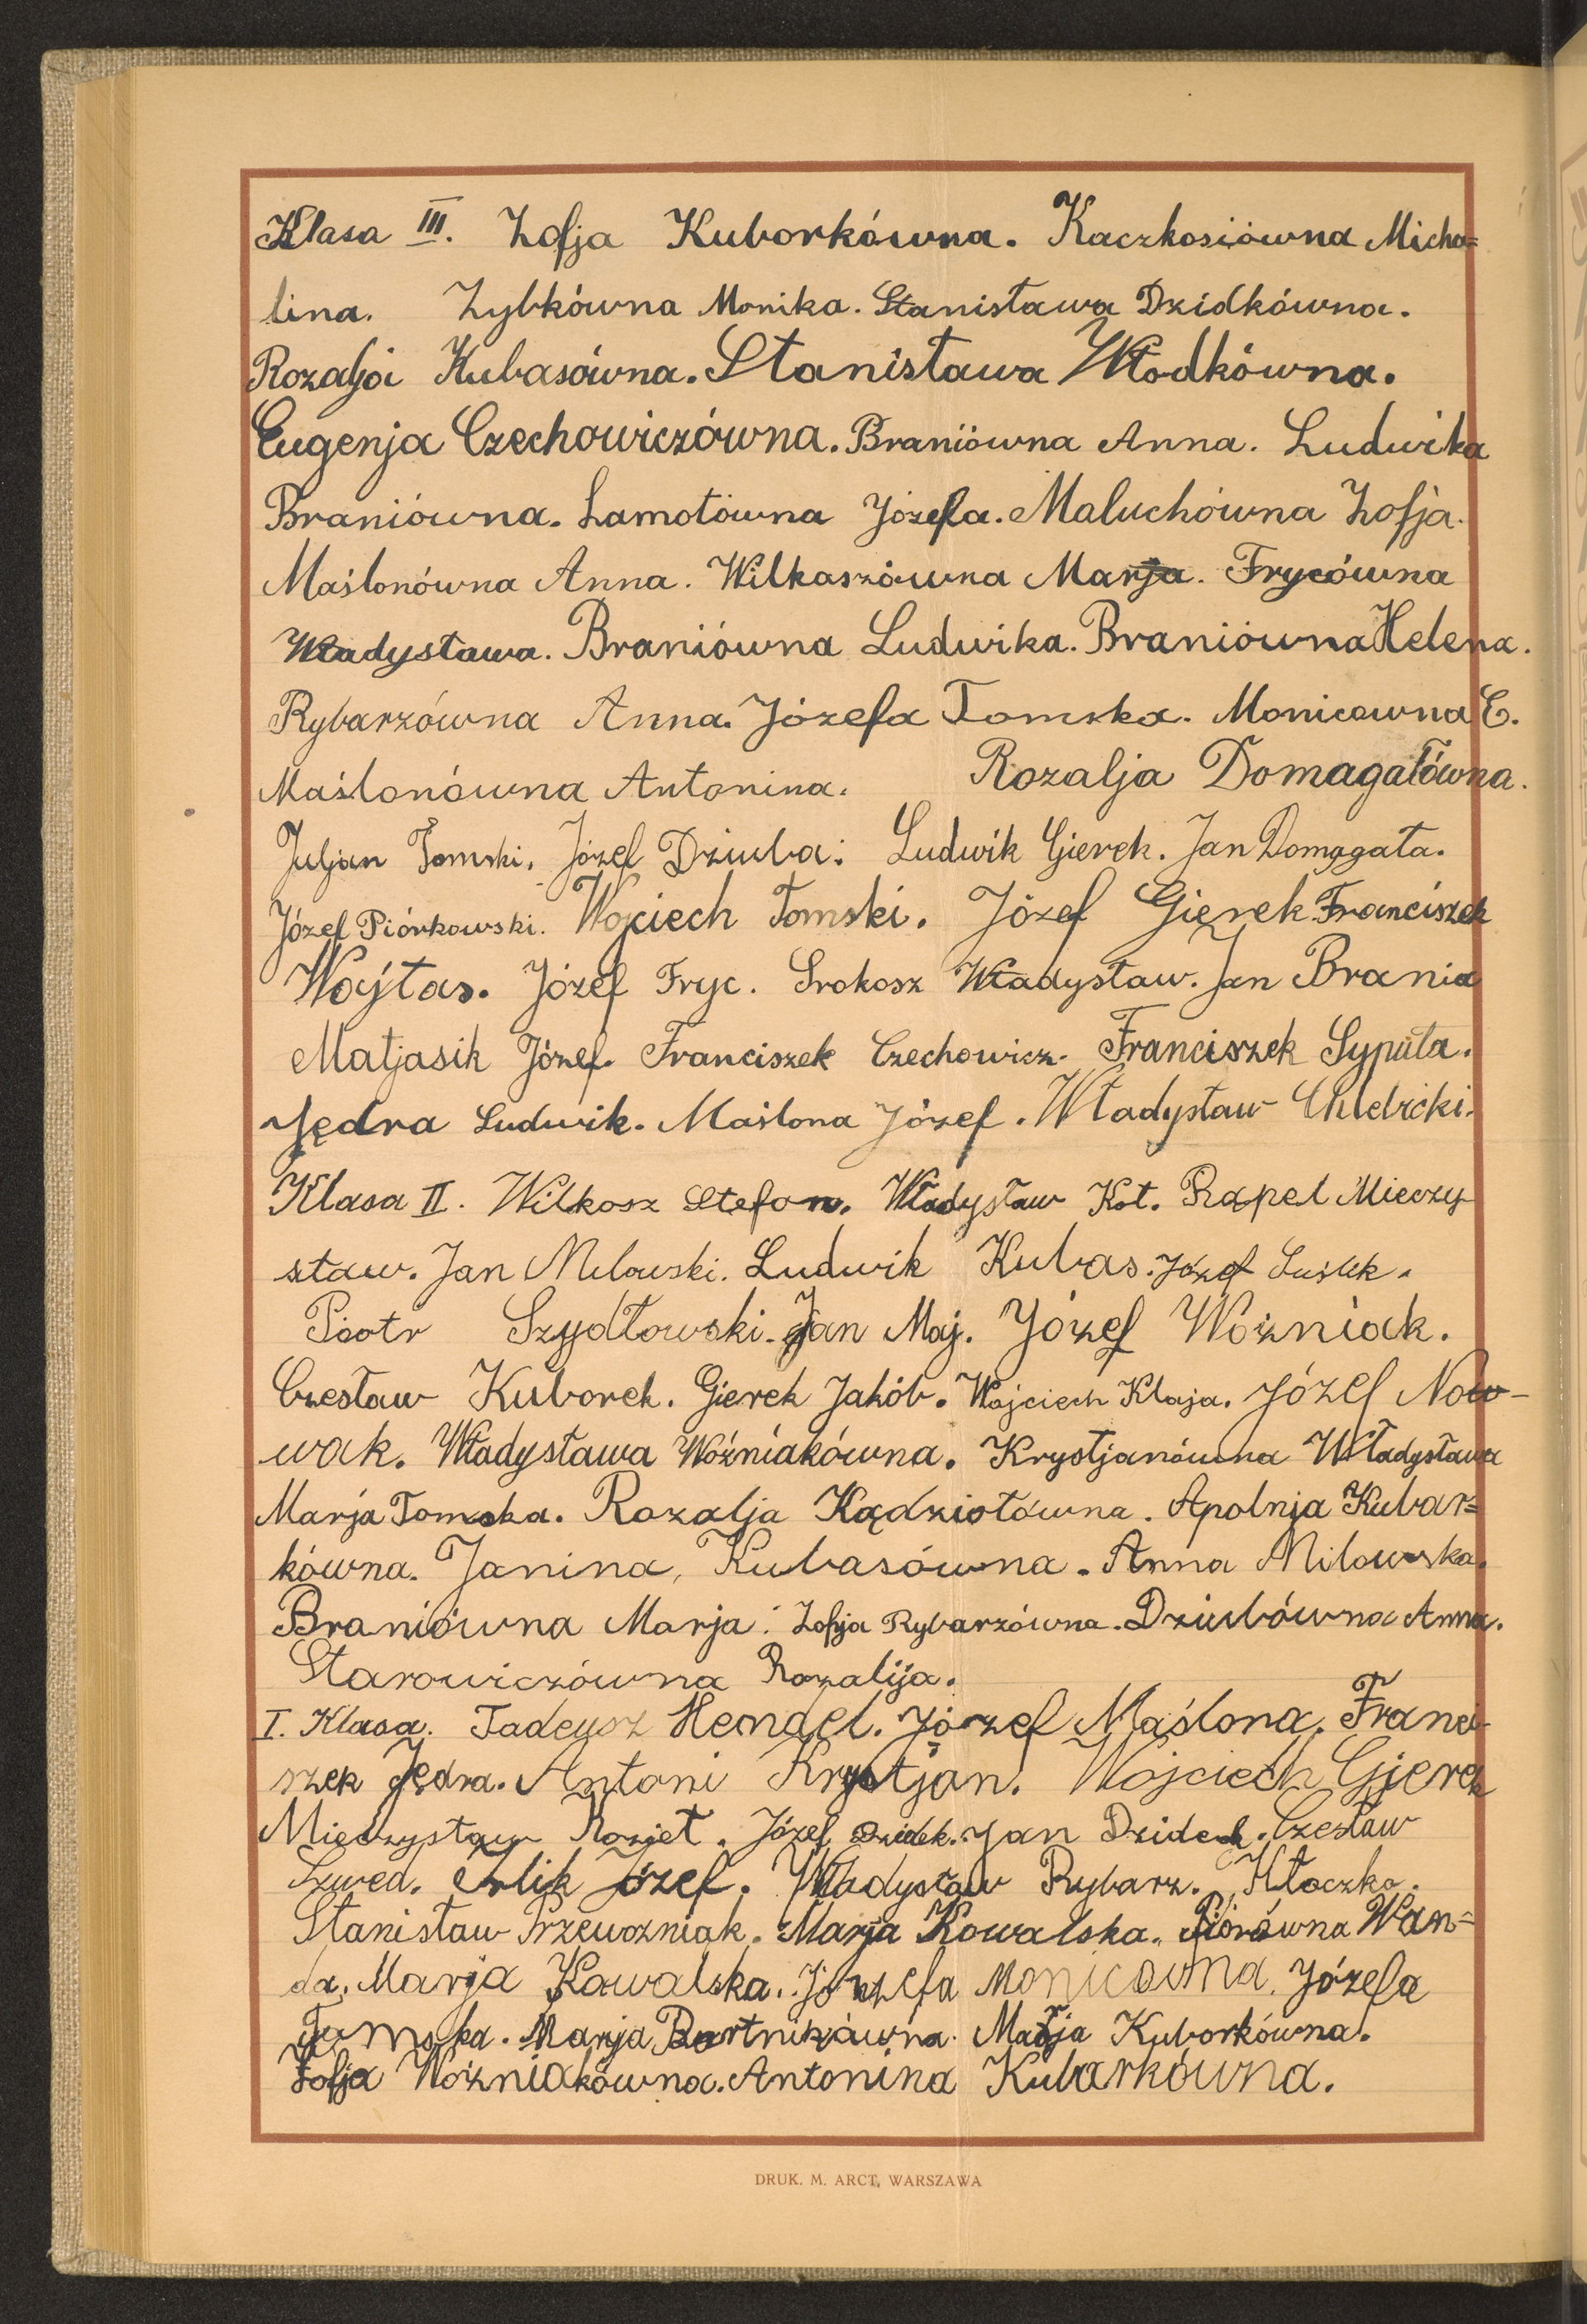 Klasa III. Zofja Kuborkówna. Kaczkosiówna Micha=
lina. Zybkówna Monika. Stanisława Dzidkówna.
Rozalja Kubasówna. Stanisława Włodkówna.
Eugenja Czechowiczówna. Braniówna Anna. Ludwika
Braniówna. Łamotówna Józefa. Maluchówna Zofja.
Maślonówna Anna. Wilkaszówna Marja. Frycówna
Władysława. Braniówna Ludwika. Braniówna Helena.
Rybarzówna Anna. Józefa Tomska. Monicowna E.
Maślonówna Antonina. Rozalja Domagałówna.
Juljan Tomski. Józef Dziuba. Ludwik Gierek. Jan Domagała.
Józef Piórkowski. Wojciech Tomski. Józef Gierek Franciszek
Wojtas. Józef Fryc. Srokosz Władysław. Jan Brania
Matjasik Józef. Franciszek Czechowicz. Franciszek Syputa.
Jędra Ludwik. Maślona Józef. Władysław
Klasa II. Wilkosz Stefan. Władysław Kot. Rąpel Mieczy
sław. Jan Milowski. Ludwik Kubas. Józef
Piotr Szydłowski. Jan Maj. Józef Woźniak.
Czesław Kuborek. Gierek Jakób. Wojciech Klaja. Józef Now-
wak. Władysława Woźniakówna. Krystjanówna Władysława
Marja Tomska. Rozalja Kądziołówna. Apolnja Kubar=
kówna. Janina, Kubasówna. Anna Milowska.
Braniówna Marja. Zofja Rybarzówna. Dziubówna Anna.
Starowiczówna Rozalija.
I. Klasa. Tadeusz Hendel. Józef Maślona. Franci-
szek Jędra. Antoni Krystjan. Wojciech Gierek
Mieczysław Kozieł. Józef Dzidek. Jan Dzidek. Czesław
Szwed. Erlik Józef. Władysław Rybarz. Kłoczko.
Stanisław Przewozniak. Marja Kowalska. Piórówna Wan=
da. Marja Kowalska. Józefa Monicówna. Józefa
Tomska. Marja Bartnikówna. Marja Kuborkówna.
Zofja Woźniakówna. Antonina Kubarkówna.
DRUK. M. ARCT, WARSZAWA